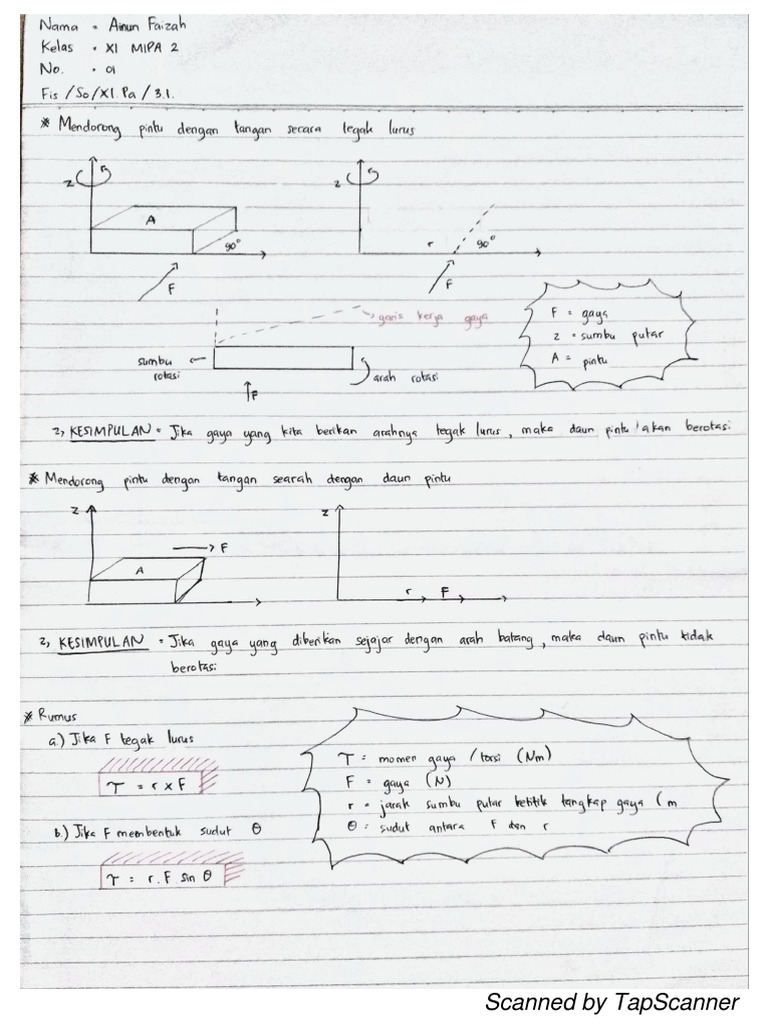 Nama = Ainun Faizah
Kelas = XI MIPA 2
No. = 01
Fis / So / XI Pa / 3.1.
* Mendorong pintu dengan tangan secara tegak lurus
z
A
90°
F
z
r
90°
F
garis kerja gaya
sumbu rotasi
arah rotasi
F
F = gaya
z = sumbu putar
A = pintu
2, KESIMPULAN = Jika gaya yang kita berikan arahnya tegak lurus, maka daun pintu akan berotasi
* Mendorong pintu dengan tangan searah dengan daun pintu
z
F
A
z
r F
2, KESIMPULAN = Jika gaya yang diberikan sejajar dengan arah batang, maka daun pintu tidak
berotasi
* Rumus
a.) Jika F tegak lurus
τ = r x F
b.) Jika F membentuk sudut θ
τ = r . F sin θ
τ = momen gaya / torsi (Nm)
F = gaya (N)
r = jarak sumbu putar ketitik tangkap gaya (m
θ = sudut antara F dan r
Scanned by TapScanner